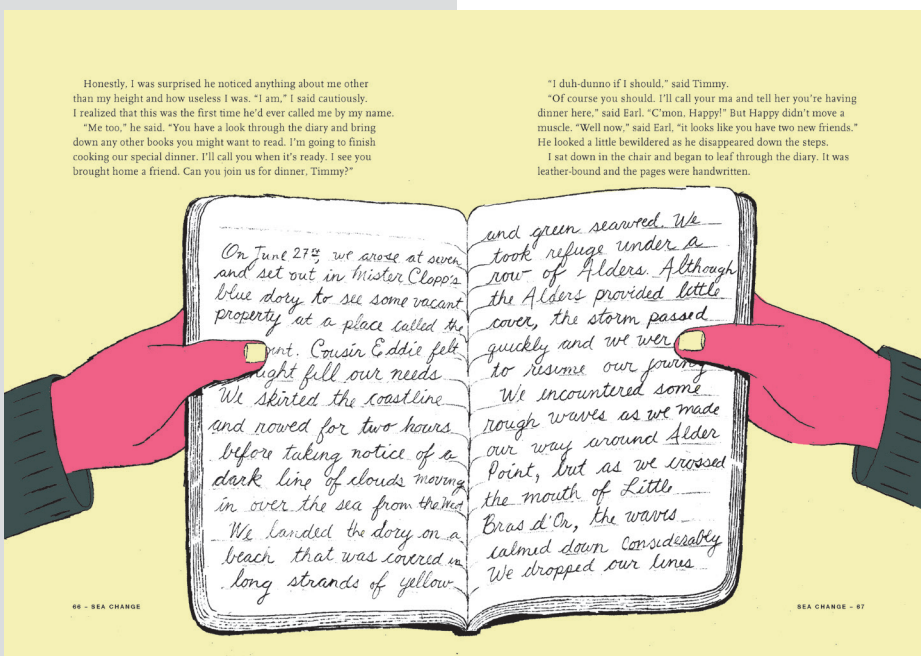 Honestly, I was surprised he noticed anything about me other
than my height and how useless I was. “I am,” I said cautiously.
I realized that this was the first time he’d ever called me by my name.
“Me too,” he said. “You have a look through the diary and bring
down any other books you might want to read. I’m going to finish
cooking our special dinner. I’ll call you when it’s ready. I see you
brought home a friend. Can you join us for dinner, Timmy?”
“I duh-dunno if I should,” said Timmy.
“Of course you should. I’ll call your ma and tell her you’re having
dinner here,” said Earl. “C’mon, Happy!” But Happy didn’t move a
muscle. “Well now,” said Earl, “it looks like you have two new friends.”
He looked a little bewildered as he disappeared down the steps.
I sat down in the chair and began to leaf through the diary. It was
leather-bound and the pages were handwritten.
On June 27th, we arose at seven
and set out in Mister Clopp's
blue dory to see some vacant
property at a place called the
Cousin Eddie felt
fill our needs
We skirted the coastline
and rowed for two hours
before taking notice of a
dark line of clouds moving
in over the sea from the West
We landed the dory on a
beach that was covered in
long strands of yellow
and green seaweed. We
took refuge under a
row of Alders. Although
the Alders provided little
cover, the storm passed
quickly and we
to resume our
We encountered some
rough waves as we made
our way around Alder
Point, but as we crossed
the mouth of Little
Bras d'Or, the waves
calmed down considerably
We dropped our lines
66 – SEA CHANGE
SEA CHANGE – 67